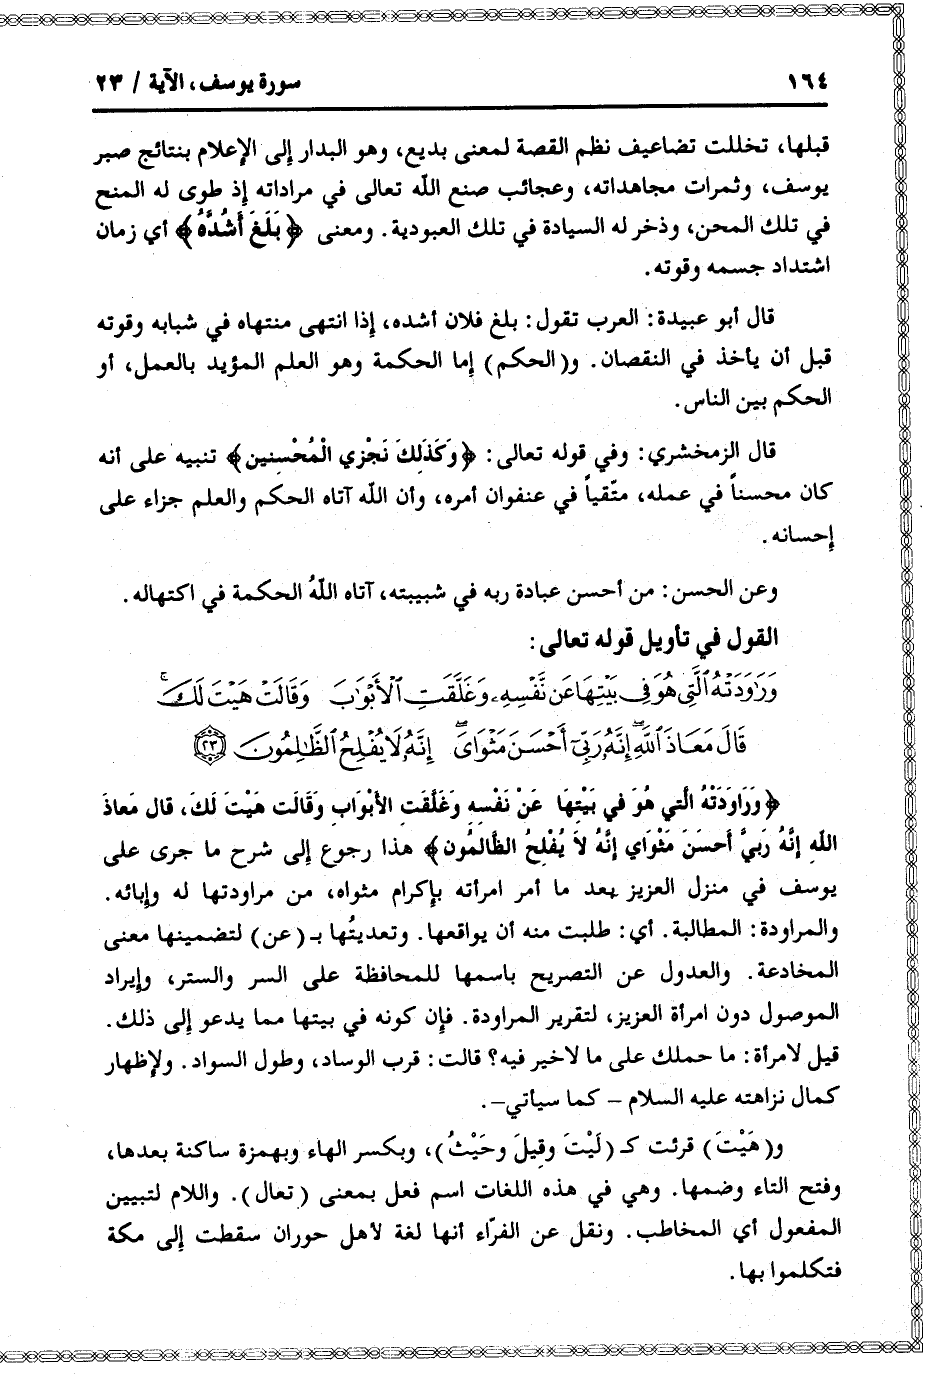 ١٦٤ سورة يوسف، الآية / ٢٣
قبلها، تخللت تضاعيف نظم القصة لمعنى بديع، وهو البدار إلى الإعلام بنتائج صبر
يوسف، وثمرات مجاهداته، وعجائب صنع الله تعالى في مراداته إذ طوى له المنح
في تلك المحن، وذخر له السيادة في تلك العبودية. ومعنى ﴿بَلَغَ أَشُدَّهُ﴾ أي زمان
اشتداد جسمه وقوته.
قال أبو عبيدة: العرب تقول: بلغ فلان أشده، إذا انتهى منتهاه في شبابه وقوته
قبل أن يأخذ في النقصان. و(الحكم) إما الحكمة وهو العلم المؤيد بالعمل، أو
الحكم بين الناس.
قال الزمخشري: وفي قوله تعالى: ﴿وَكَذَلِكَ نَجْزِي الْمُحْسِنِين﴾ تنبيه على أنه
كان محسناً في عمله، متّقياً في عنفوان أمره، وأن الله آتاه الحكم والعلم جزاء على
إحسانه.
وعن الحسن: من أحسن عبادة ربه في شبيبته، آتاه اللهُ الحكمة في اكتهاله.
القول في تأويل قوله تعالى:
وَرَاوَدَتْهُ الَّتِي هُوَ فِي بَيْتِهَا عَن نَّفْسِهِ وَغَلَّقَتِ الْأَبْوَابَ وَقَالَتْ هَيْتَ لَكَ ۚ
قَالَ مَعَاذَ اللَّهِ ۖ إِنَّهُ رَبِّي أَحْسَنَ مَثْوَايَ ۖ إِنَّهُ لَا يُفْلِحُ الظَّالِمُونَ ٢٣
﴿وَرَاوَدَتْهُ الَّتي هُوَ في بَيْتِهَا عَنْ نَفْسِهِ وَغَلَّقَتِ الأبْوَابِ وَقَالَت هَيْتَ لَكَ، قال مَعاذَ
اللَّهِ إِنَّهُ رَبيَّ أَحسَنَ مَثْوَاي إِنَّهُ لاَ يُفْلِحُ الظَّالمُون﴾ هذا رجوع إلى شرح ما جرى على
يوسف في منزل العزيز بعد ما أمر امرأته بإكرام مثواه، من مراودتها له وإبائه.
والمراودة: المطالبة. أي: طلبت منه أن يواقعها. وتعديتُها بـ(عن) لتضمينها معنى
المخادعة. والعدول عن التصريح باسمها للمحافظة على السر والستر، وإيراد
الموصول دون امرأة العزيز، لتقرير المراودة. فإن كونه في بيتها مما يدعو إلى ذلك.
قيل لامرأة: ما حملك على ما لاخير فيه؟ قالت: قرب الوساد، وطول السواد. ولإظهار
كمال نزاهته عليه السلام – كما سيأتي–.
و(هَيْتَ) قرئت كـ (لَيْتَ وقيلَ وحَيْثُ)، وبكسر الهاء وبهمزة ساكنة بعدها،
وفتح التاء وضمها. وهي في هذه اللغات اسم فعل بمعنى (تعال). واللام لتبيين
المفعول أي المخاطب. ونقل عن الفرّاء أنها لغة لأهل حوران سقطت إلى مكة
فتكلموا بها.